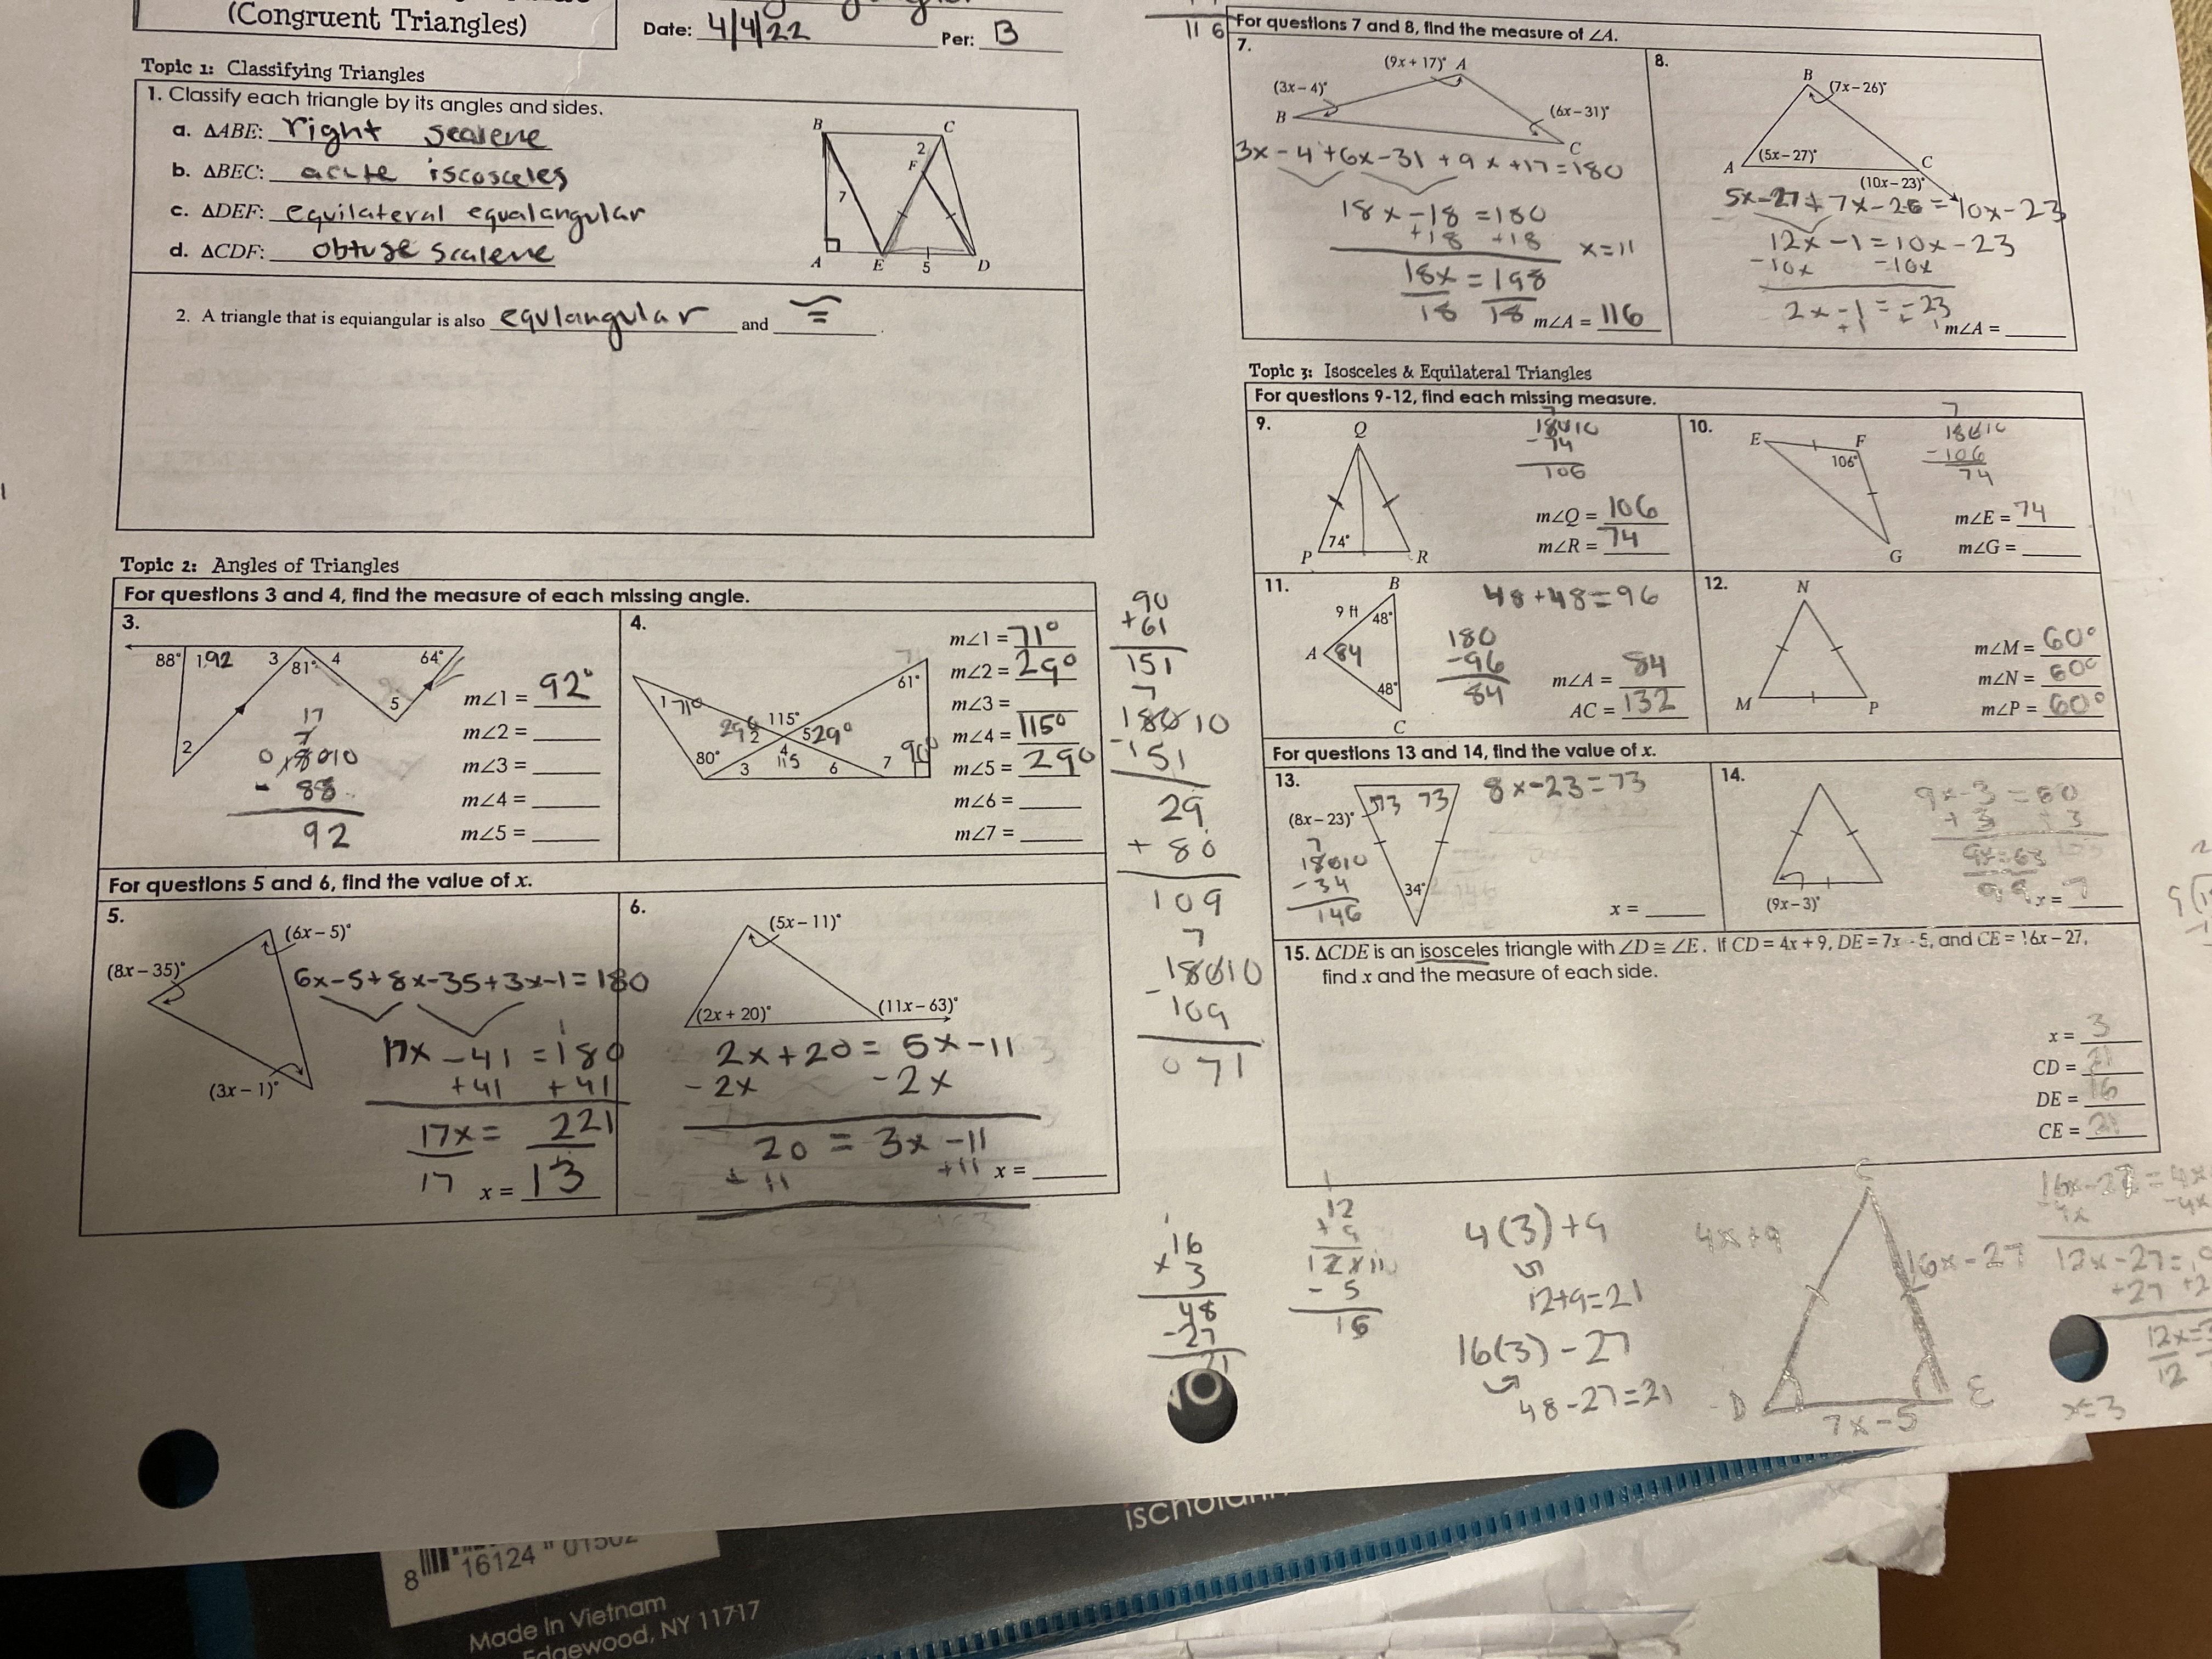 (Congruent Triangles)
Date: 4/4/22 Per: B
Topic 1: Classifying Triangles
1. Classify each triangle by its angles and sides.
a. ΔABE: right scalene
b. ΔBEC: acute iscosceles
c. ΔDEF: equilateral equalangular
d. ΔCDF: obtuse scalene
B
C
2
F
7
A
E
5
D
2. A triangle that is equiangular is also equlangular and ≅.
Topic 2: Angles of Triangles
For questions 3 and 4, find the measure of each missing angle.
3.
88° 1 92 3 81° 4 64°
5
2
m∠1 = 92°
m∠2 =
m∠3 =
m∠4 =
m∠5 =
- 88
92
4.
1 71° 61°
29 2 115° 5 29°
80° 3 4 115 6 7 90°
m∠1 = 71°
m∠2 = 29°
m∠3 =
m∠4 = 115°
m∠5 = 290
m∠6 =
m∠7 =
90
+61
151
18010
-151
29
+ 80
109
18010
- 109
071
For questions 5 and 6, find the value of x.
5.
(6x – 5)°
(8x – 35)°
(3x – 1)°
6x-5+8x-35+3x-1=180
17x -41 =180
+41 +41
17x = 221
17
x = 13
6.
(5x – 11)°
(2x + 20)°
(11x – 63)°
2x+20= 5x-11
-2x -2x
20 = 3x -11
+ 11 +11
x =
116
For questions 7 and 8, find the measure of ∠A.
7.
(9x + 17)° A
(3x – 4)°
B
(6x – 31)°
C
3x-4+6x-31+9x+17=180
18x-18 =180
+18 +18 x=11
18x = 198
18 18
m∠A = 116
8.
B
(7x – 26)°
A
(5x – 27)°
C
(10x – 23)°
5x-27+7x-26=10x-23
12x-1=10x-23
-10x -10x
2x-1=-23
+1
m∠A =
Topic 3: Isosceles & Equilateral Triangles
For questions 9-12, find each missing measure.
9.
Q
P
74°
R
18010
-74
106
m∠Q = 106
m∠R = 74
10.
E
F
106°
G
18010
-106
74
m∠E = 74
m∠G =
11.
B
9 ft
48°
A
84
48°
C
48+48=96
180
-96
84
m∠A = 84
AC = 132
12.
N
M
P
m∠M = 60°
m∠N = 60°
m∠P = 60°
For questions 13 and 14, find the value of x.
13.
(8x – 23)°
73 73
34°
8x-23=73
18010
-34
146
x =
14.
(9x – 3)°
9x-3=60
+3 +3
9x=63
9 9
x = 7
15. ΔCDE is an isosceles triangle with ∠D ≅ ∠E. If CD = 4x + 9, DE = 7x - 5, and CE = 16x – 27,
find x and the measure of each side.
x = 3
CD = 21
DE = 16
CE = 21
16
x 3
48
-27
21
12
+9
- 5
16
4(3)+9
12+9=21
16(3)-27
48-27=21
C
4x+9
16x-27
D
E
7x-5
-4x -4x
+27
12
x=3
8 16124 01502
Made In Vietnam
Edgewood, NY 11717